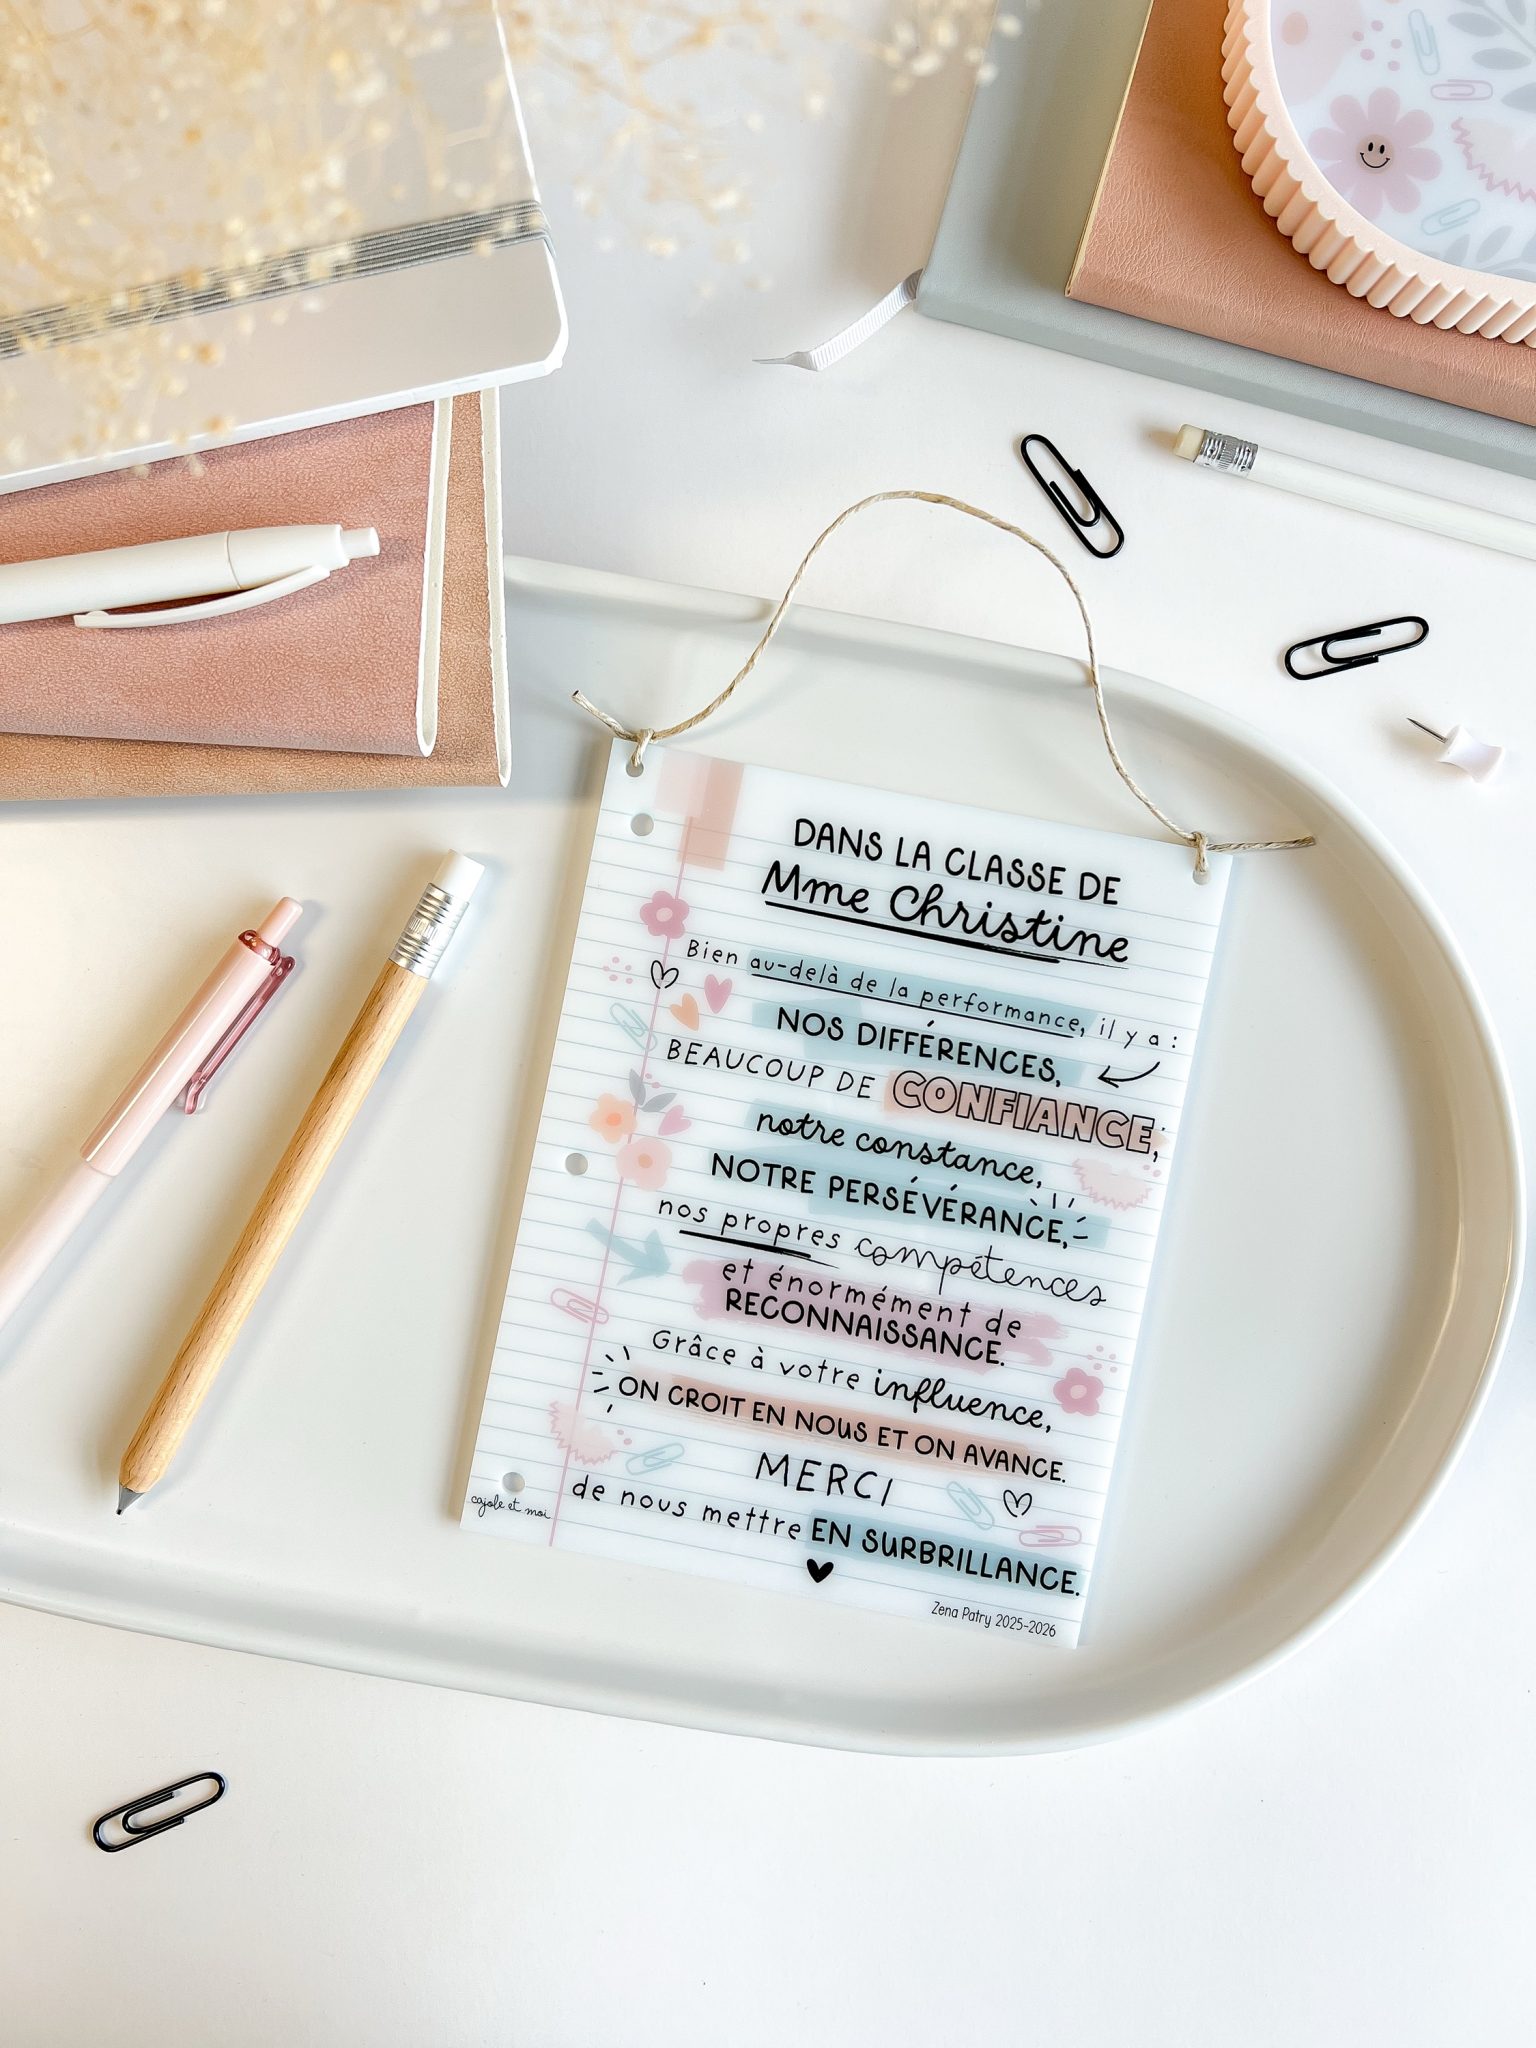 DANS LA CLASSE DE
Mme Christine
Bien au-delà de la performance, il y a :
NOS DIFFÉRENCES,
BEAUCOUP DE CONFIANCE,
notre constance,
NOTRE PERSÉVÉRANCE,
nos propres compétences
et énormément de
RECONNAISSANCE.
Grâce à votre influence,
ON CROIT EN NOUS ET ON AVANCE.
MERCI
de nous mettre EN SURBRILLANCE.
cajole et moi
Zena Patry 2025-2026